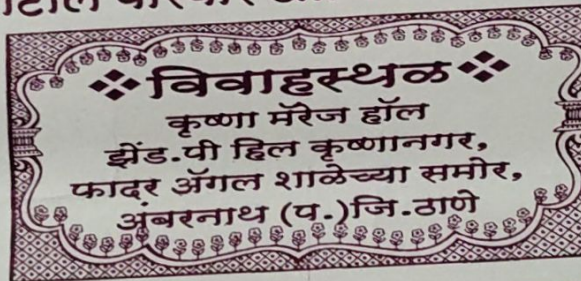 ❖ विवाहस्थळ ❖
कृष्णा मॅरेज हॉल
झेंड.पी हिल कृष्णानगर,
फादर ॲगल शाळेच्या समोर,
अंबरनाथ (प.)जि.ठाणे